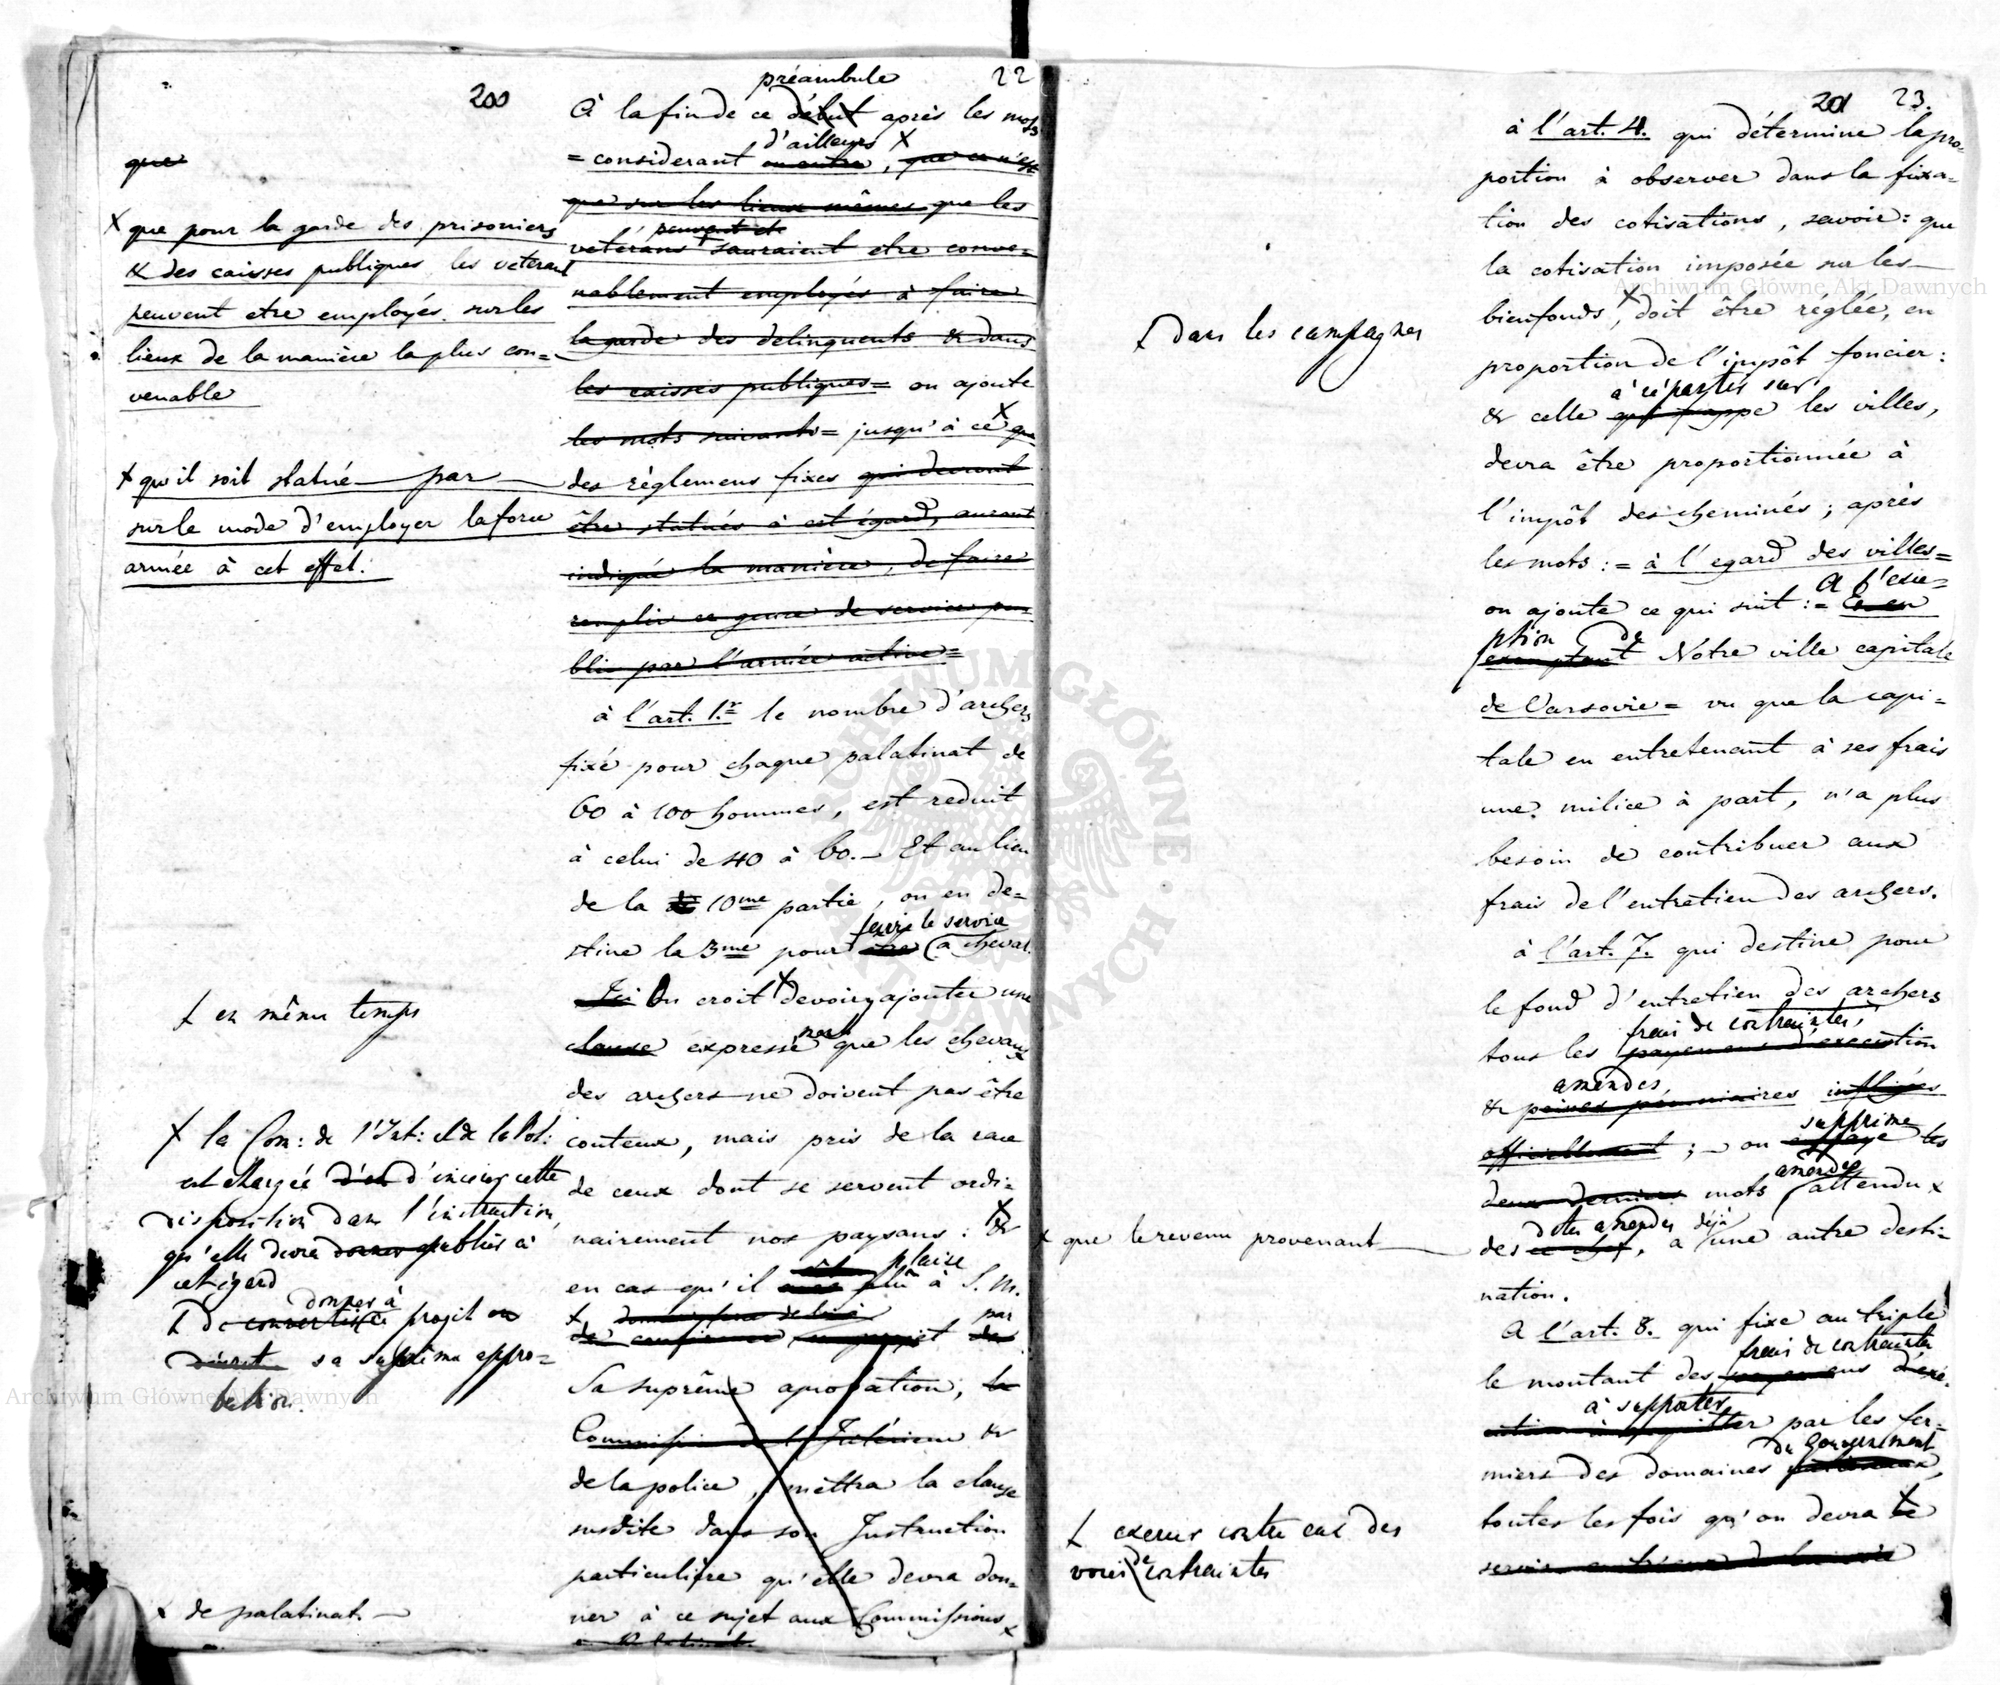 200
22
que
X que pour la garde des prisoniers
& des caisses publiques, les veterans
peuvent etre employés sur les
lieux de la manière la plus con=
venable
X qu'il soit statué par
sur le mode d'employer la force
armée à cet effet.
X en même temps
X la Com: de l'Int: et de la Pol:
est chargée d'en d'inserer cette
disposition dans l'instruction,
qu'elle devra donner publier à
cet égard
donner à
X De convertir ce projet en
décret sa suprême appro=
bation.
x de palatinat
préambule
À la fin de ce début après les mots
d'ailleurs X
= considerant en outre, que ce n'est
que sur les lieux mêmes que les
peuvent et
vetérans sauraient etre conve=
nablement employés à faire
la garde des delinquents & dans
les caisses publiques = on ajoute
les mots suivants = jusqu'à ce X que
des règlemens fixes qui devront
être statués à cet égard, auront
indiqué la manière, de faire
remplir ce genre de services pu=
blic par l'armée active =
à l'art. 1.r le nombre d'archers
fixé pour chaque palatinat de
60 à 100 hommes, est reduit
à celui de 40 à 60. – Et au lieu
de la 10me partie, on en de=
faire le service
stine la 3me pour être à cheval.
Ici On croit X devoir y ajouter une
ment
clause expresse que les chevaux
des archers ne doivent pas être
couteux, mais pris de la race
de ceux dont se servent ordi=
nairement nos paysans: X &
plaise
en cas qu'il plu à S. M.
par
de confirmer ce projet
Sa suprême aprobation, la
Commission de l'Intérieur &
de la police, mettra la clause
susdite dans son Instruction
particulière qu'elle devra don=
ner à ce sujet aux Commissions x
201
23.
X dans les campagnes
x que le revenu provenant
X exercer contre eux des
voies de contraintes
à l'art. 4. qui détermine la pro=
portion à observer dans la fixa=
tion des cotisations, savoir: que
la cotisation imposée sur les
bienfonds X, doit être réglée, en
proportion de l'impôt foncier:
à répartir sur
& celle qui frappe les villes,
devra être proportionnée à
l'impôt des cheminés; après
les mots: = à l'egard des villes =
A l'exe=
on ajoute ce qui suit: = Et en
ption de
exemptant Notre ville capitale
de Varsovie = vu que la capi=
tale en entretenant à ses frais
une milice à part, n'a plus
besoin de contribuer aux
frais de l'entretien des archers.
à l'art. 7. qui destine pour
le fond d'entretien des archers
frais de contraintes,
tous les payemens d'execution
amendes,
& peines pécuniaires infligés
supprime
officiellement; – on efface les
amendes
deux derniers mots, attendu x
dites amendes déjà
des ce chef, a une autre desti=
nation.
A l'art. 8. qui fixe au triple
frais de contrainte
le montant des payemens d'exé=
à supporter
cution à acquitter par les fer=
du Gouvernement
miers des domaines nationaux,
toutes les fois qu'on devra X se